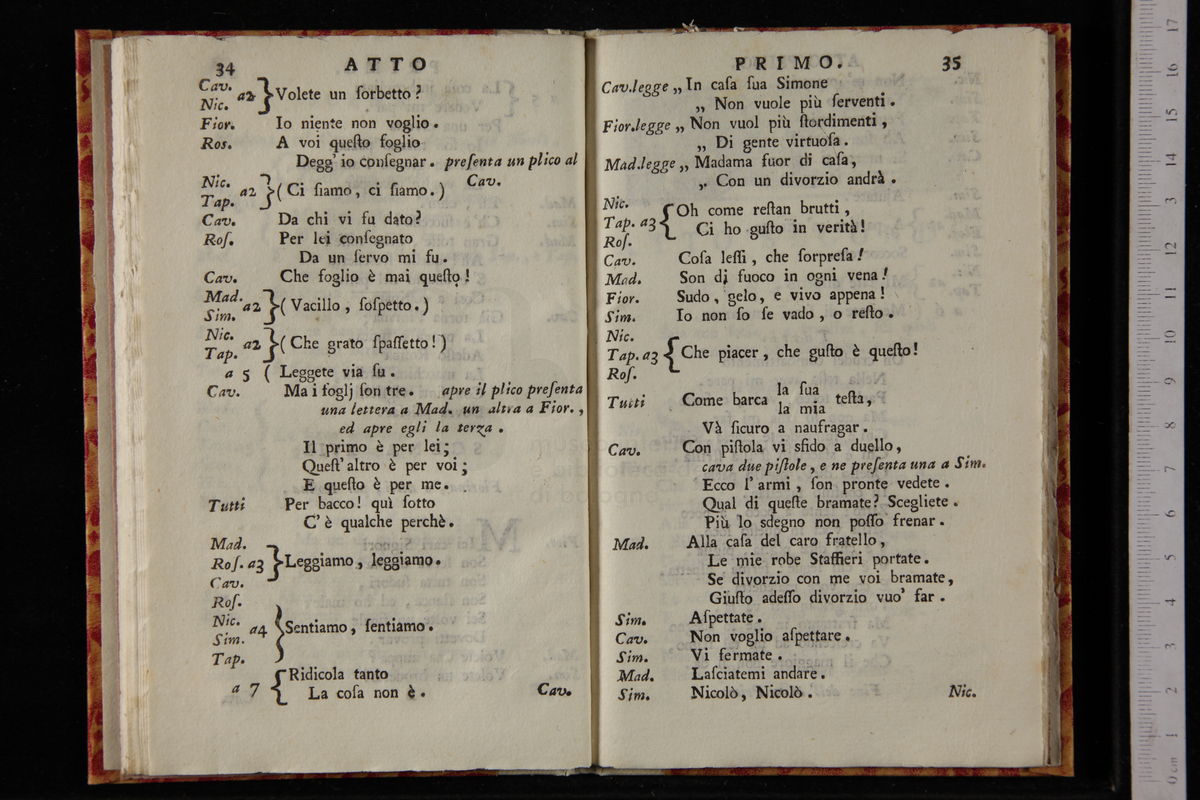 34 ATTO
Cav.
Nic. a2 } Volete un sorbetto?
Fior. Io niente non voglio.
Ros. A voi queſto foglio
Degg' io conſegnar. preſenta un plico al
Cav.
Nic.
Tap. a2 } ( Ci ſiamo, ci ſiamo. )
Cav. Da chi vi fu dato?
Roſ. Per lei conſegnato
Da un ſervo mi fu.
Cav. Che foglio è mai queſto!
Mad.
Sim. a2 } ( Vacillo, ſoſpetto. )
Nic.
Tap. a2 } ( Che grato ſpaſſetto! )
a 5 ( Leggete via ſu.
Cav. Ma i foglj ſon tre. apre il plico preſenta
una lettera a Mad. un altra a Fior.,
ed apre egli la terza.
Il primo è per lei;
Queſt' altro è per voi;
E queſto è per me.
Tutti Per bacco! quì ſotto
C' è qualche perchè.
Mad.
Roſ. a3 } Leggiamo, leggiamo.
Cav.
Roſ.
Nic.
Sim. a4 } Sentiamo, ſentiamo.
Tap.
a 7 { Ridicola tanto
La coſa non è. Cav.
PRIMO. 35
Cav.legge „ In caſa ſua Simone
„ Non vuole più ſerventi.
Fior.legge „ Non vuol più ſtordimenti,
„ Di gente virtuoſa.
Mad.legge „ Madama fuor di caſa,
„ Con un divorzio andrà.
Nic.
Tap. a3 { Oh come reſtan brutti,
Ci ho guſto in verità!
Roſ.
Cav. Coſa leſſi, che ſorpreſa!
Mad. Son di fuoco in ogni vena!
Fior. Sudo, gelo, e vivo appena!
Sim. Io non ſo ſe vado, o reſto.
Nic.
Tap. a3 { Che piacer, che guſto è queſto!
Roſ.
Tutti Come barca la ſua
la mia teſta,
Và ſicuro a naufragar.
Cav. Con piſtola vi sfido a duello,
cava due piſtole, e ne preſenta una a Sim.
Ecco l' armi, ſon pronte vedete.
Qual di queſte bramate? Scegliete.
Più lo sdegno non poſſo frenar.
Mad. Alla caſa del caro fratello,
Le mie robe Staffieri portate.
Se divorzio con me voi bramate,
Giuſto adeſſo divorzio vuo' far.
Sim. Aſpettate.
Cav. Non voglio aſpettare.
Sim. Vi fermate.
Mad. Laſciatemi andare.
Sim. Nicolò, Nicolò. Nic.